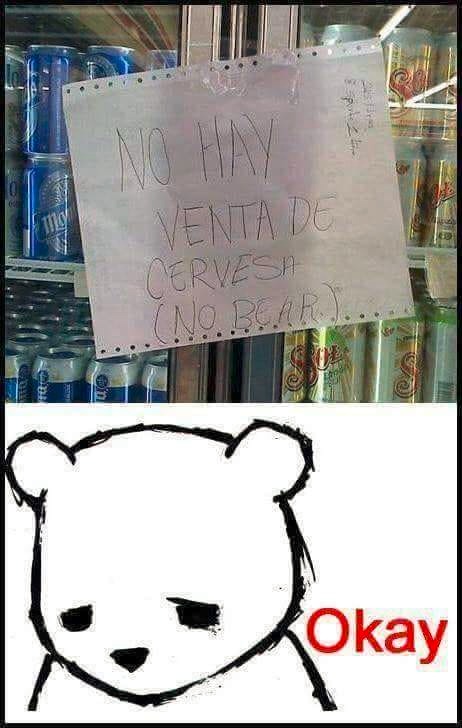 NO HAY
VENTA DE
CERVESA
(NO BEAR)
Sol
Okay